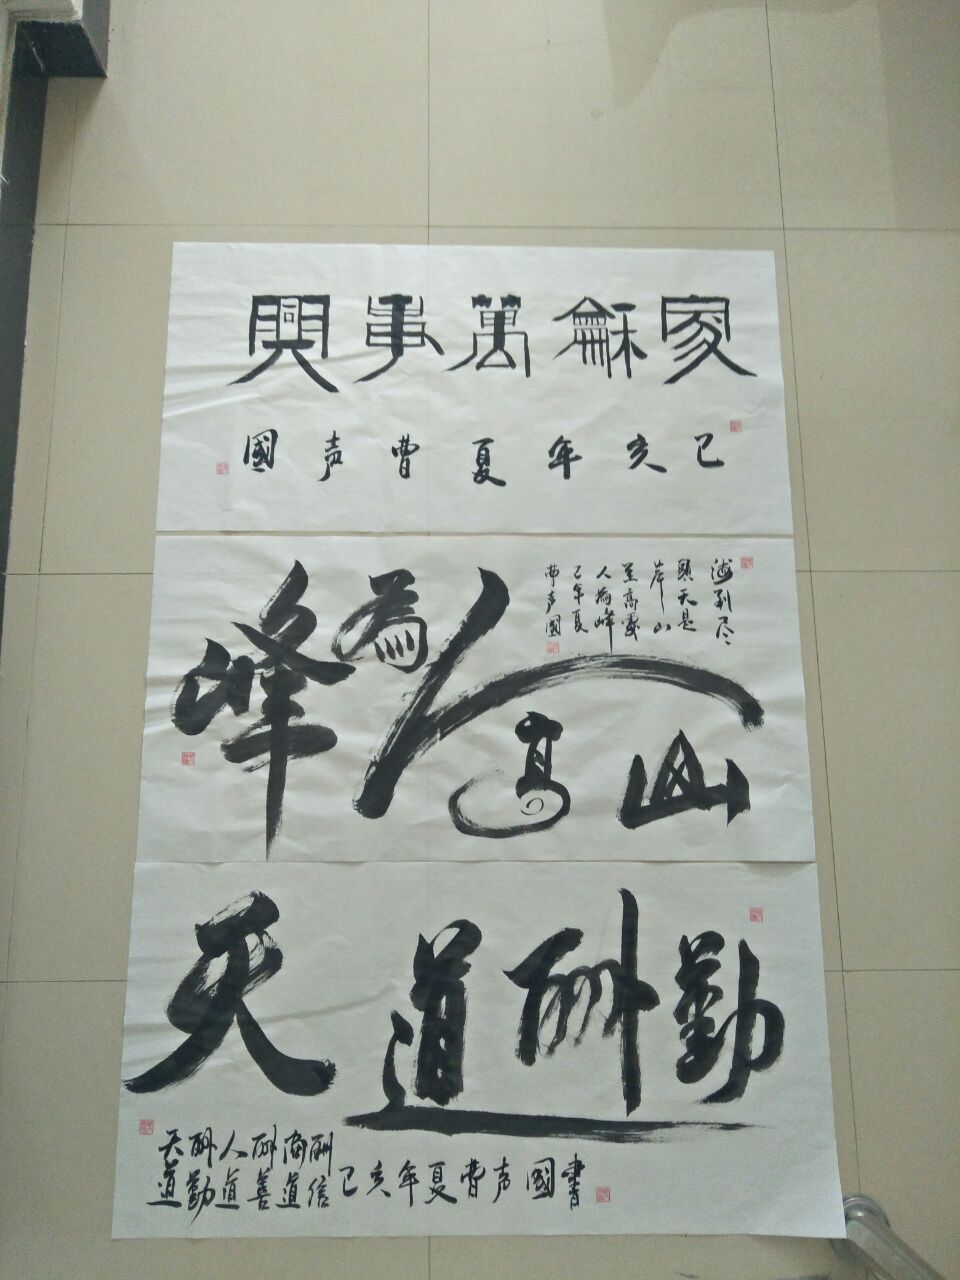 家龢萬事興
己亥年夏曹声國
山高人為峰
海到尽
頭天是
岸山
至高處
人為峰
己年夏
曹声國
天道酬勤
天道
酬勤
人道
酬善
商道
酬信
己亥年夏曹声國書